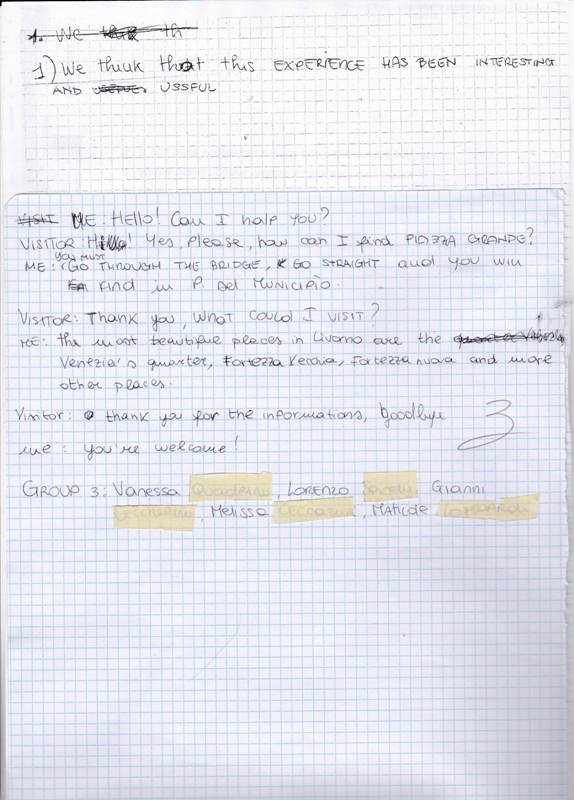 1. We th
1) We think that this EXPERIENCE HAS BEEN INTERESTING
AND USEFUL
VISIT ME: Hello! Can I help you?
VISITOR Hello! Yes, please, how can I find PIAZZA GRANDE?
you must
ME: GO THROUGH THE BRIDGE, GO STRAIGHT and you will
find in P. del MUNICIPIO.
VISITOR: Thank you, what could I visit?
ME: the most beautiful places in Livorno are the
Venezia's quarter, Fortezza Vecchia, Fortezza nuova and more
other places.
Visitor: thank you for the informations, Goodbye
me: you're welcome!
3
GROUP 3: Vanessa, LORENZO, Gianni
, Melissa, Matilde